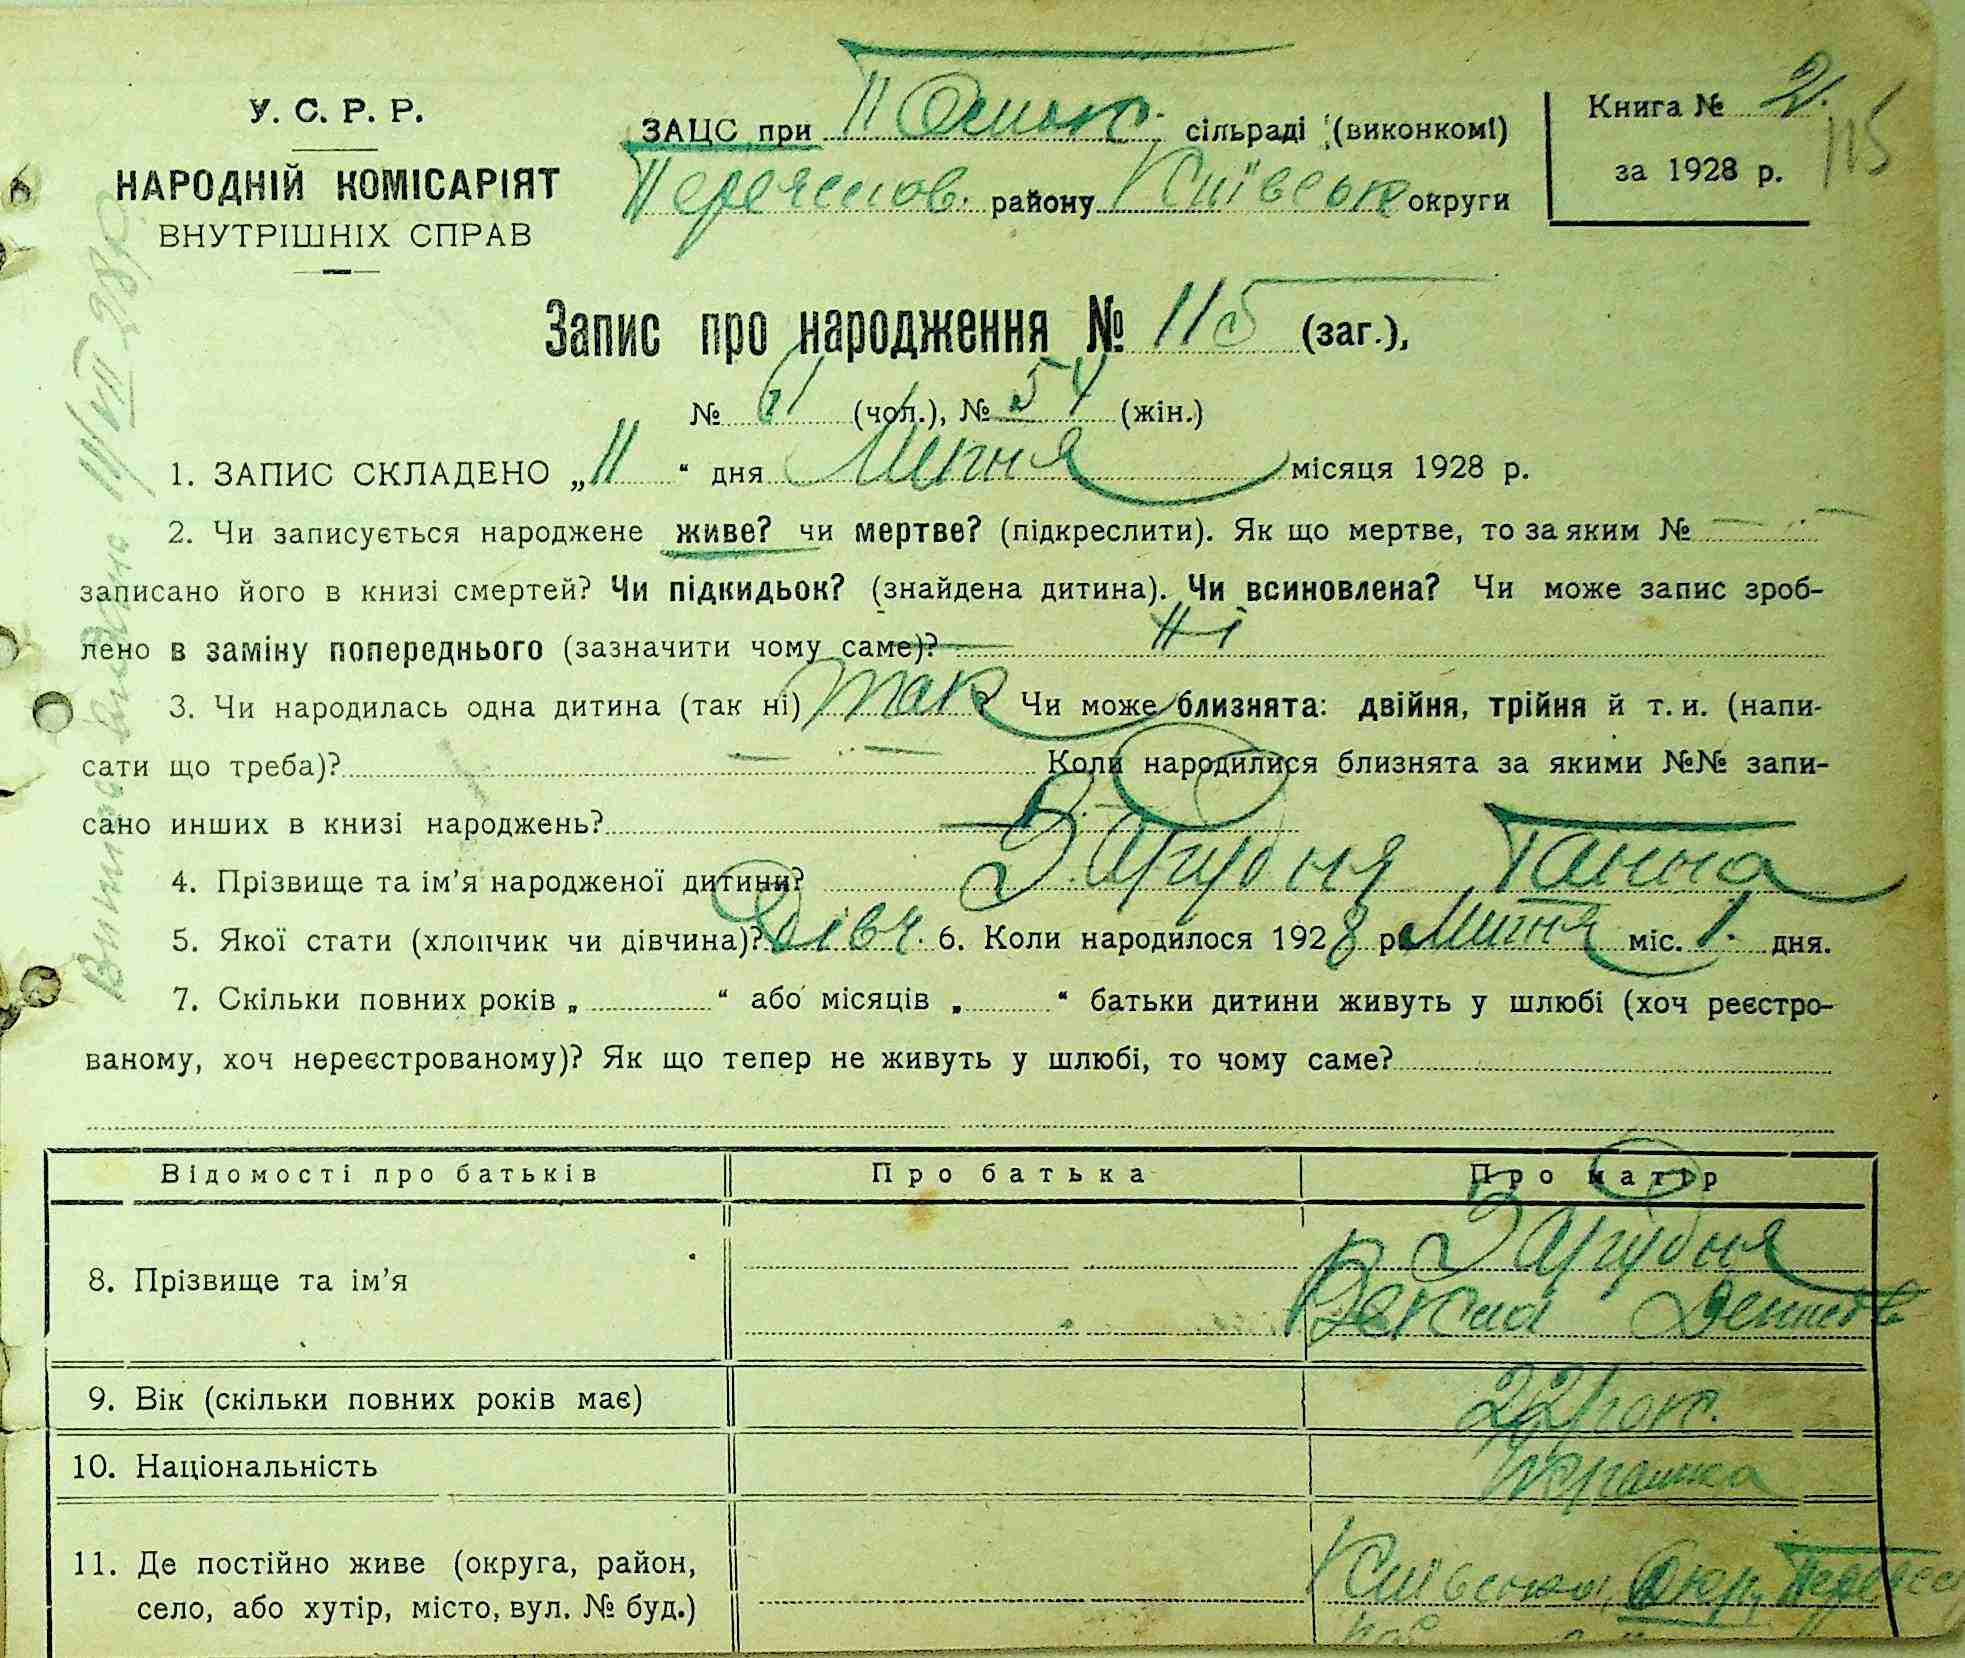 У. С. Р. Р.
НАРОДНІЙ КОМІСАРІЯТ
ВНУТРІШНІХ СПРАВ
ЗАЦС при сільраді (виконкомі)
Переяслов. району Київськ округи
Книга № 2.
за 1928 р.
115
Запис про народження № 115 (заг.),
№ 61 (чол.), № 54 (жін.)
1. ЗАПИС СКЛАДЕНО „11“ дня Липня місяця 1928 р.
2. Чи записується народжене живе? чи мертве? (підкреслити). Як що мертве, то за яким № —
записано його в книзі смертей? Чи підкидьок? (знайдена дитина). Чи всиновлена? Чи може запис зроб-
лено в заміну попереднього (зазначити чому саме)? — Ні
3. Чи народилась одна дитина (так ні) так? Чи може близнята: двійня, трійня й т. и. (напи-
сати що треба)? — Коли народилися близнята за якими №№ запи-
сано инших в книзі народжень? —
4. Прізвище та ім'я народженої дитини? Загубня Ганна
5. Якої стати (хлопчик чи дівчина)? дівч. 6. Коли народилося 1928 р. Липня міс. 1. дня.
7. Скільки повних років „ “ або місяців „ “ батьки дитини живуть у шлюбі (хоч реєстро-
ваному, хоч нереєстрованому)? Як що тепер не живуть у шлюбі, то чому саме?
Відомості про батьків Про батька Про матір
8. Прізвище та ім'я Загубня
Векла Денисів
9. Вік (скільки повних років має) 22 рок.
10. Національність Українка
11. Де постійно живе (округа, район, Київської Окр.,
село, або хутір, місто, вул. № буд.)